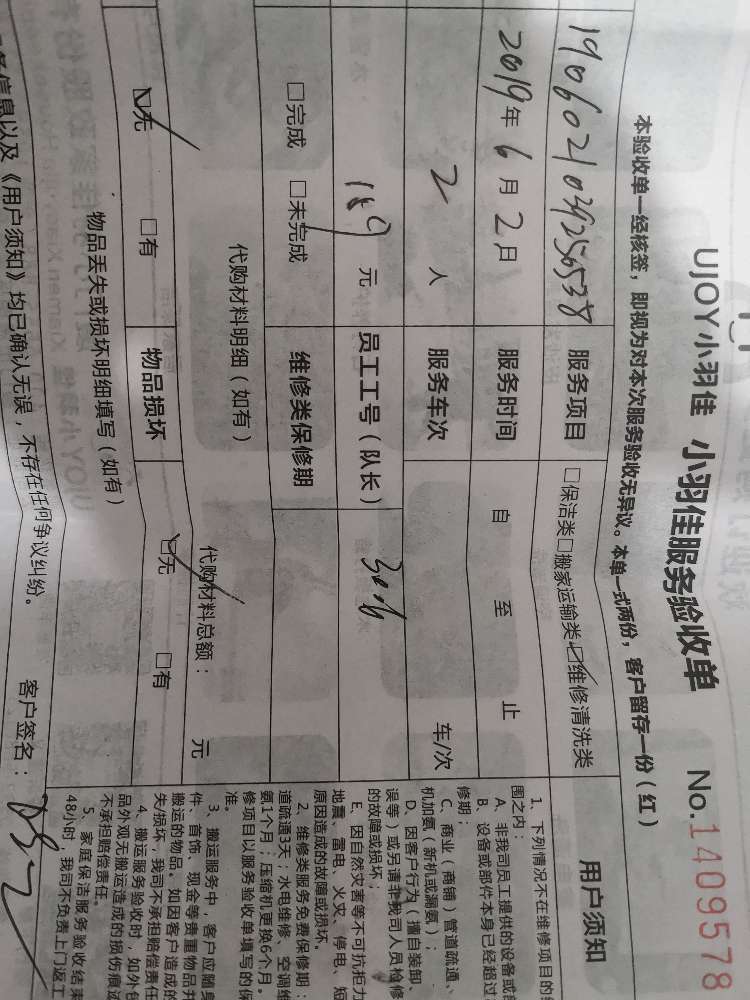 UJOY小羽佳 小羽佳服务验收单 No.1409578
本验收单一经核签，即视为对本次服务验收无异议。本单一式两份，客户留存一份（红）
19060210392565538 服务项目 □保洁类□搬家运输类☑维修清洗类
2019年6月2日 服务时间 自 至 止
2 人 服务车次 车/次
元 员工工号（队长）
□完成 □未完成 维修类保修期
代购材料明细（如有） 代购材料总额： 元
☑无 □有 物品损坏 ☑无 □有
物品丢失或损坏明细填写（如有）
务信息以及《用户须知》均已确认无误，不存在任何争议纠纷。 客户签名：
用户须知
1、下列情况不在维修项目的
围之内：
A、非我司员工提供的设备或
B、设备或部件本身已经超过
修期；
C、商业（商铺）管道疏通、
机加氨（新机或漏氨）；
D、因客户行为（擅自装卸、
误等）或另请非我司人员检修
的故障或损坏；
E、因自然灾害等不可抗拒力
地震、雷电、火灾、停电、短
原因造成的故障或损坏。
2、维修类服务免费保修期：
道疏通3天；水电维修、空调维
氨1个月；压缩机更换6个月。
修项目以服务验收单填写的保
准。
3、搬运服务中，客户应随身
件、首饰、现金等贵重物品并
搬运的物品。如因客户造成的
失/损坏，我司不承担赔偿责任
4、搬运服务验收时，如外包
品外观无搬运造成的损伤痕迹
不承担赔偿责任。
5、家庭保洁服务验收结束
48小时，我司不负责上门返工